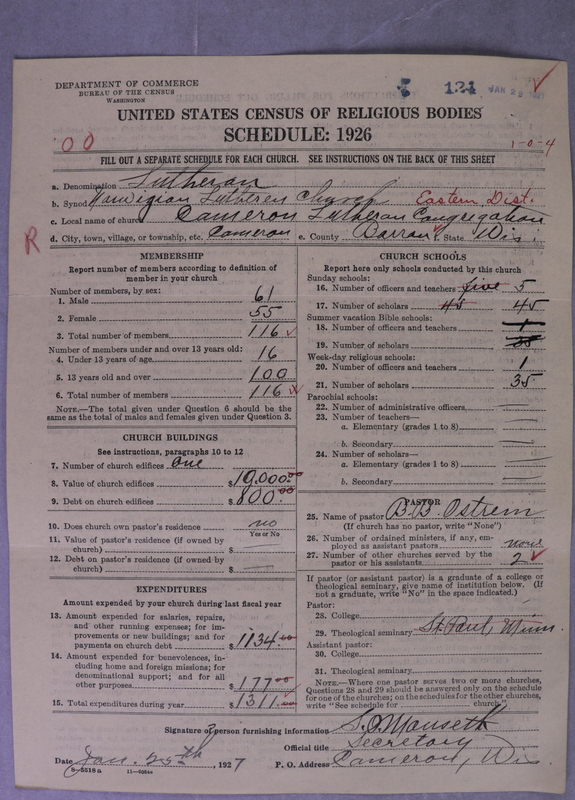 DEPARTMENT OF COMMERCE
BUREAU OF THE CENSUS
WASHINGTON
124 JAN 29
UNITED STATES CENSUS OF RELIGIOUS BODIES
SCHEDULE: 1926
00
1-0-4
FILL OUT A SEPARATE SCHEDULE FOR EACH CHURCH. SEE INSTRUCTIONS ON THE BACK OF THIS SHEET
a. Denomination Lutheran
b. Synod Norwigian Lutheren Church Eastern Dist.
c. Local name of church Cameron Lutheran Congregation
R
d. City, town, village, or township, etc. Cameron e. County Barron State Wis.
MEMBERSHIP
Report number of members according to definition of member in your church
Number of members, by sex:
1. Male 61
2. Female 55
3. Total number of members 116
Number of members under and over 13 years old:
4. Under 13 years of age 16
5. 13 years old and over 100
6. Total number of members 116
NOTE.—The total given under Question 6 should be the same as the total of males and females given under Question 3.
CHURCH BUILDINGS
See instructions, paragraphs 10 to 12
7. Number of church edifices one
8. Value of church edifices $10,000.00
9. Debt on church edifices $800.00
10. Does church own pastor's residence no
Yes or No
11. Value of pastor's residence (if owned by church) $
12. Debt on pastor's residence (if owned by church) $
EXPENDITURES
Amount expended by church during last fiscal year
13. Amount expended for salaries, repairs, and other running expenses; for improvements or new buildings; and for payments on church debt $1134.00
14. Amount expended for benevolences, including home and foreign missions; for denominational support; and for all other purposes $177.00
15. Total expenditures during year $1311.00
CHURCH SCHOOLS
Report here only schools conducted by this church
Sunday schools:
16. Number of officers and teachers five 5
17. Number of scholars 45 45
Summer vacation Bible schools:
18. Number of officers and teachers 1
19. Number of scholars 35
Week-day religious schools:
20. Number of officers and teachers 1
21. Number of scholars 35
Parochial schools:
22. Number of administrative officers
23. Number of teachers—
a. Elementary (grades 1 to 8)
b. Secondary
24. Number of scholars—
a. Elementary (grades 1 to 8)
b. Secondary
PASTOR
25. Name of pastor B.B. Ostrem
(If church has no pastor, write "None")
26. Number of ordained ministers, if any, employed as assistant pastors none
27. Number of other churches served by the pastor or his assistants 2
If pastor (or assistant pastor) is a graduate of a college or theological seminary, give name of institution below. (If not a graduate, write "No" in the space indicated.)
Pastor:
28. College
29. Theological seminary St. Paul, Minn.
Assistant pastor:
30. College
31. Theological seminary
NOTE.—Where one pastor serves two or more churches, Questions 28 and 29 should be answered only on the schedule for one of the churches; on the schedules for the other churches, write "See schedule for church."
Signature of person furnishing information S.O. Mauseth
Official title Secretary
Date Jan. 25th, 1927 P. O. Address Cameron, Wis